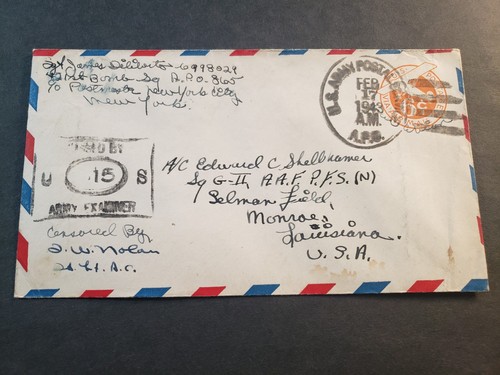 Sgt James 6998029
Bomb Sq A.P.O. 865
c/o Postmaster New York City
New York.
U.S. ARMY POSTAL
FEB
17
1943
A.M.
A.P.O.
6c
PASSED BY
U 15 S
ARMY EXAMINER
Censored By
J. W. Nolan
A.C.
A/C Edward C Shellhamer
Sq G-II, A.A.F.P.F.S. (N)
Selman Field,
Monroe,
Louisiana.
U.S.A.